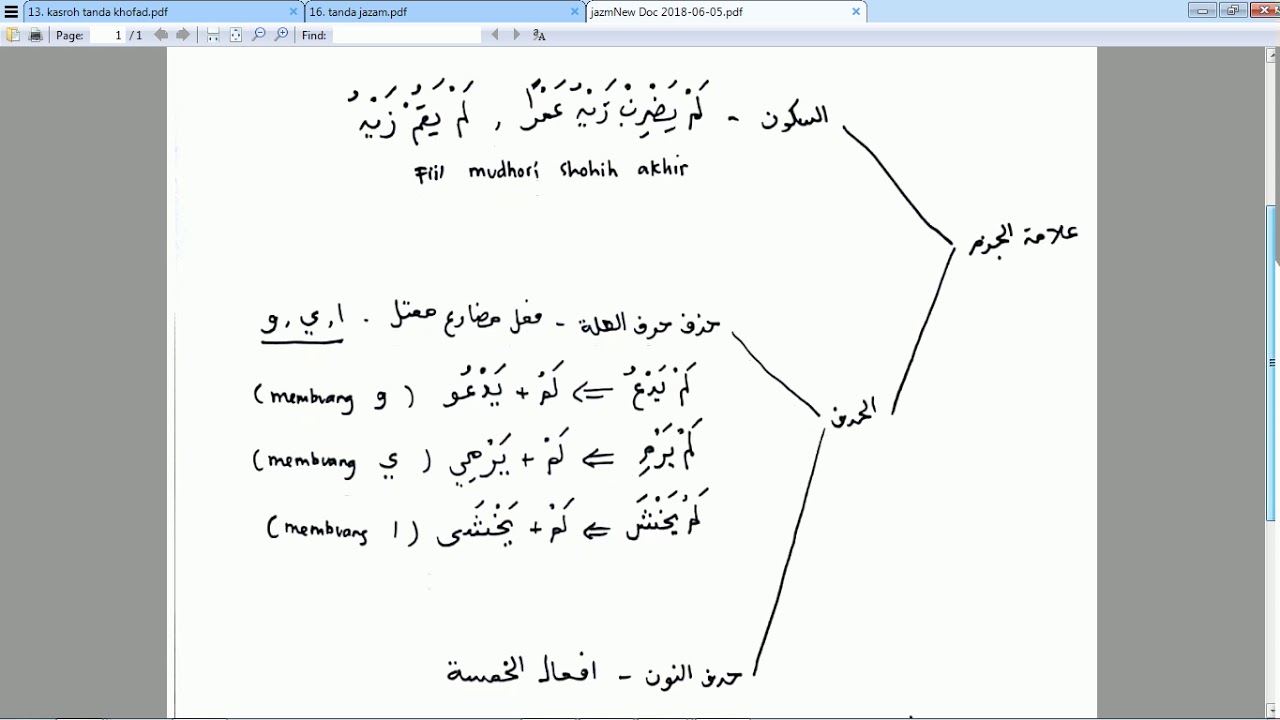 13. kasroh tanda khofad.pdf 16. tanda jazam.pdf jazmNew Doc 2018-06-05.pdf
Page: 1 / 1 Find:
السكون - لَمْ يَضْرِبْ زَيْدٌ عَمْرًا , لَمْ يَقُمْ زَيْدٌ
Fiil mudhori shohih akhir
علامة الجزم
حذف حرف العلة - فعل مضارع معتل . ا , ي , و
لَمْ يَدْعُ <= لَمْ + يَدْعُو (membuang و)
الحذف
لَمْ يَرْمِ <= لَمْ + يَرْمِي (membuang ي)
لَمْ يَخْشَ <= لَمْ + يَخْشَى (membuang ا)
حذف النون - افعال الخمسة